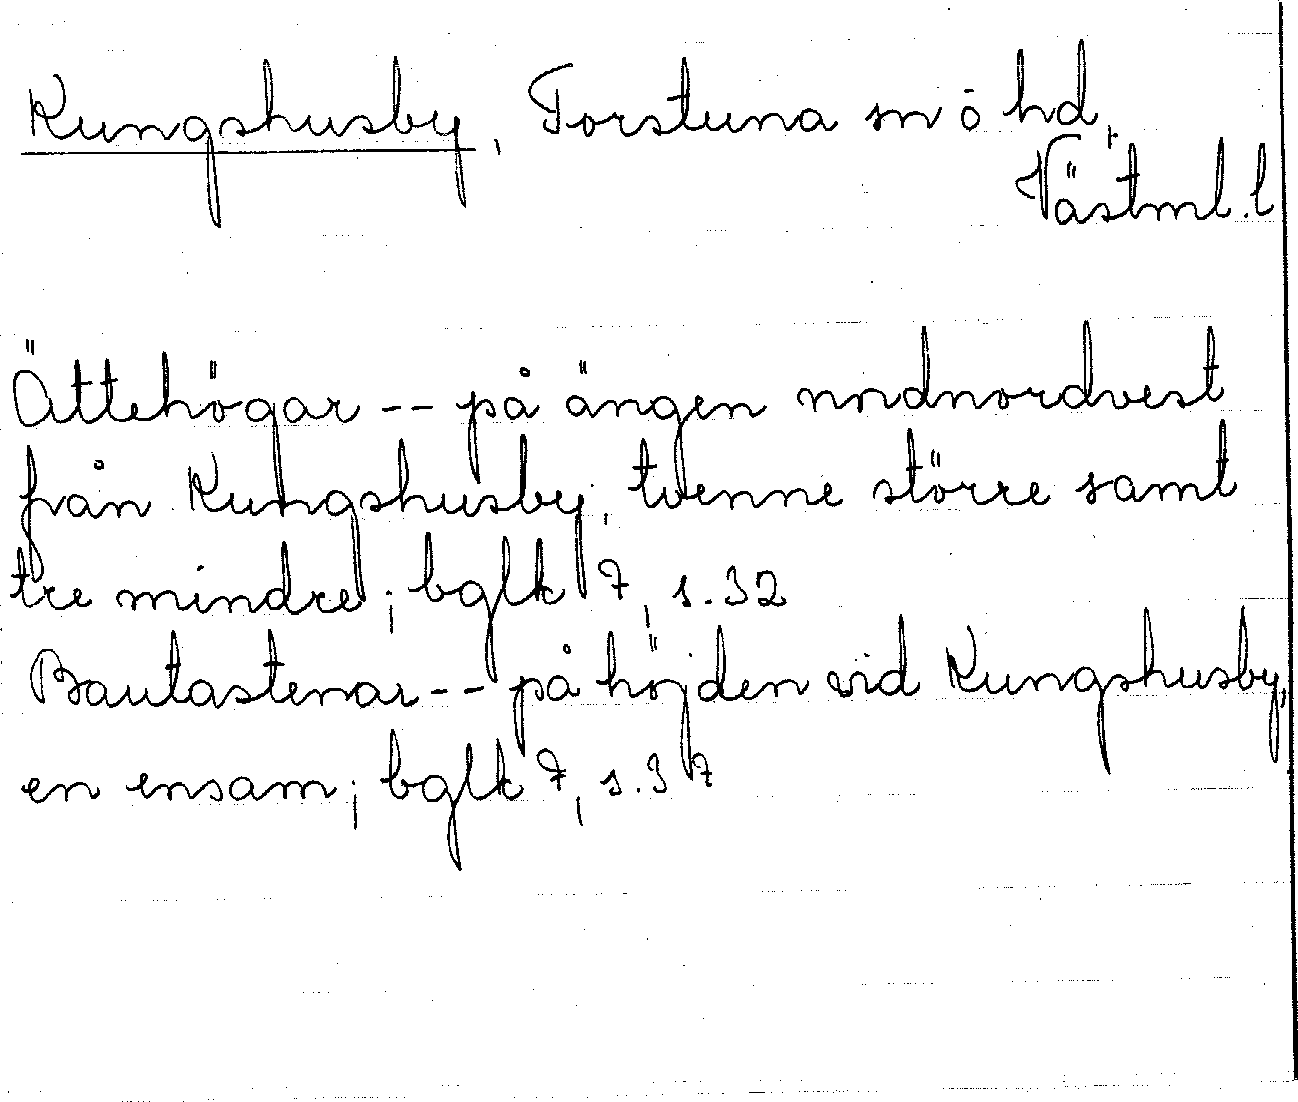 Kungshusby, Torstuna sn ö hd,
Västml. l
Ättehögar -- på ängen nndnordvest
från Kungshusby, tvenne större samt
tre mindre; bglk 7, s. 32
Bautastenar -- på höjden vid Kungshusby,
en ensam; bglk 7, s. 37